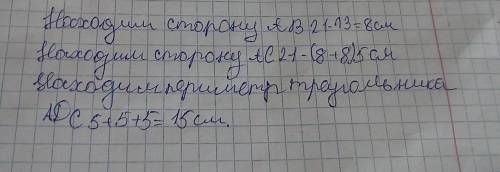 Находим сторону АВ 21-13=8см
Находим сторону АС 21-(8+8)5см
Находим периметр треугольника
АDС 5+5+5=15см.